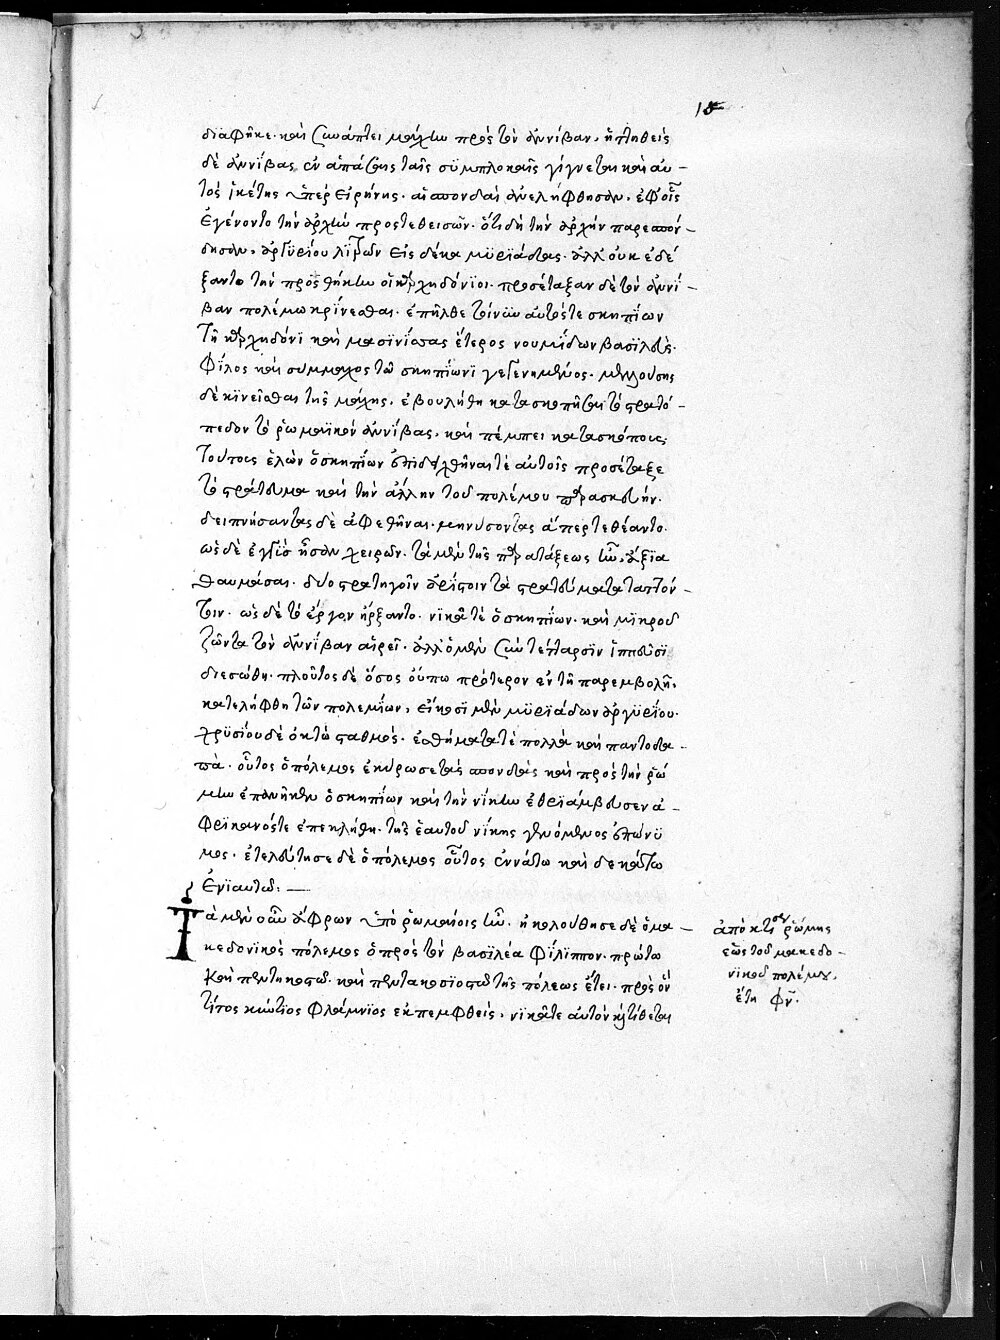 18
διαφῆκε· καὶ συνάπτει μάχην πρὸς τὸν ἀννίβαν, ἡττηθεὶς
δὲ ἀννίβας ἐν ἁπάσαις ταῖς συμπλοκαῖς γίγνεται καὶ αὐ-
τὸς ἱκέτης ὑπὲρ εἰρήνης· αἱ σπονδαὶ ἀνελήφθησαν, ἐφ' οἷς
ἐγένοντο τὴν ἀρχὴν προστεθεισῶν· ὅτι δὴ τὴν ἀρχὴν παρεσπόν-
δησαν, ἀργυρίου λιτρῶν εἰς δέκα μυριάδας· ἀλλ' οὐκ ἐδέ
ξαντο τὴν προσθήκην οἱ καρχηδόνιοι· προσέταξαν δὲ τὸν ἀννί-
βαν πολέμω κρίνεσθαι· ἐπῆλθε τοίνυν αὐτός τε σκηπίων
τῇ καρχηδόνι καὶ μασινίσσας ἕτερος νουμίδων βασιλεύς·
φίλος καὶ σύμμαχος τῶ σκηπίωνι γεγενημένος· μελλούσης
δὲ κινεῖσθαι τῆς μάχης, ἐβουλήθη κατασκοπῆσαι τὸ στρατό-
πεδον τὸ ῥωμαϊκὸν ἀννίβας, καὶ πέμπει κατασκόπους·
τούτους ἑλὼν ὁ σκηπίων ἐπιδειχθῆναί τε αὐτοῖς προσέταξε
τὸ στράτευμα καὶ τὴν ἄλλην τοῦ πολέμου παρασκευήν·
δειπνήσαντας δὲ ἀφεθῆναι· μηνύσοντας ἅπερ τεθέαντο·
ὡς δὲ ἐγγὺς ἦσαν χειρῶν· τὰ μὲν τῆς παρατάξεως ἦν ἄξια
θαυμάσαι· δύο στρατηγοῖν ἀρίστοιν τὰ στρατεύματα ταττόν-
τοιν· ὡς δὲ τὸ ἔργον ἤρξαντο· νικᾶ τὲ ὁ σκηπίων· καὶ μικροῦ
ζῶντα τὸν ἀννίβαν αἱρεῖ· ἀλλ' ὁ μὲν σὺν τέτταρσιν ἱππεῦσι
διεσώθη· πλοῦτος δὲ ὅσος οὔπω πρότερον ἐν τῆ παρεμβολῆ,
κατελήφθη τῶν πολεμίων, εἴκοσι μὲν μυριάδων ἀργυρίου·
χρυσίου δὲ ὀκτὼ σταθμὸς· ἐσθήματα τὲ πολλὰ καὶ παντοδα-
πά· οὗτος ὁ πόλεμος ἐκύρωσε τὰς σπονδὰς καὶ πρὸς τὴν ῥώ
μην ἐπανήκων ὁ σκηπίων καὶ τὴν νίκην ἐθριάμβευσεν ἀ-
φρικανός τε ἐπεκλήθη· τῆς ἑαυτοῦ νίκης γενόμενος ἐπώνυ
μος· ἐτελεύτησε δὲ ὁ πόλεμος οὗτος ἐννάτω καὶ δεκάτω
ἐνιαυτῶ: —
Τὰ μὲν οὖν ἄφρων ὑπὸ ῥωμαίοις ἦν· ἠκολούθησε δὲ ὁ μα-
κεδονικὸς πόλεμος ὁ πρὸς τὸν βασιλέα φίλιππον· πρώτω
καὶ πεντηκοστῶ· καὶ πεντακοσιοστῶ τῆς πόλεως ἔτει· πρὸς ὃν
τίτος κώτιος φλάμνιος ἐκπεμφθεὶς, νικᾶ τε αὐτὸν καὶ τίθεται
ἀπὸ κτίσεως ῥώμης
ἕως τοῦ μακεδο-
νικοῦ πολέμου,
ἔτη φν·